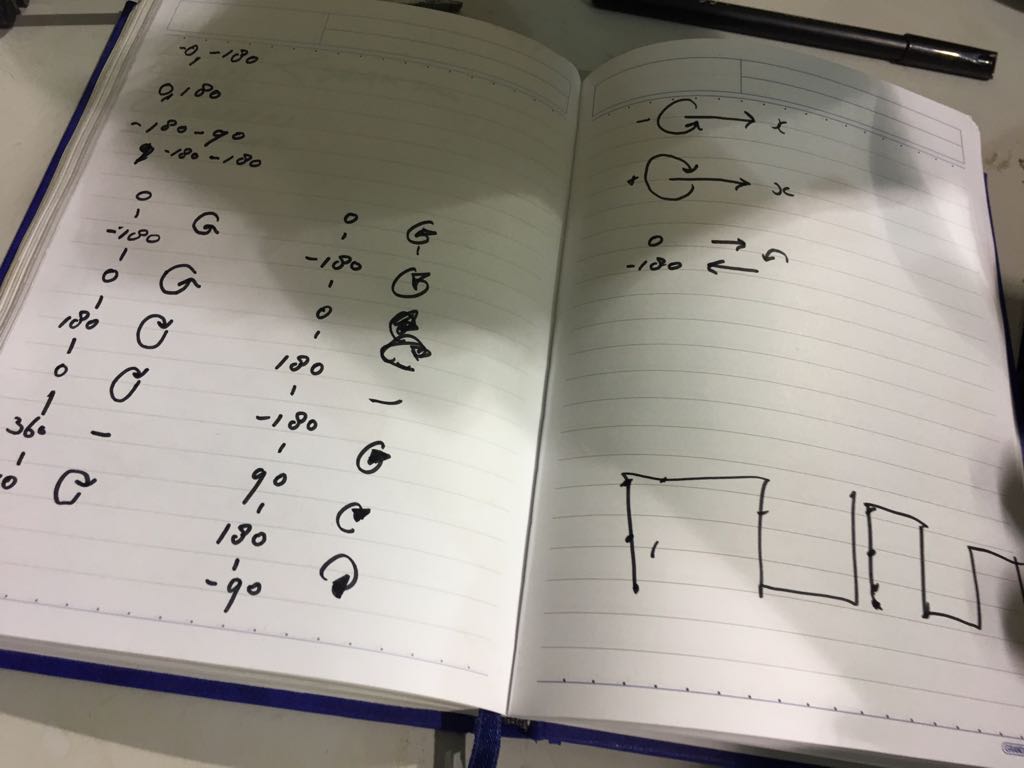 -0, -180
0, 180
-180 -90
-180 -180
0
-180
0
180
0
360
0
-180
0
180
-180
90
180
-90
- x
+ x
0
-180